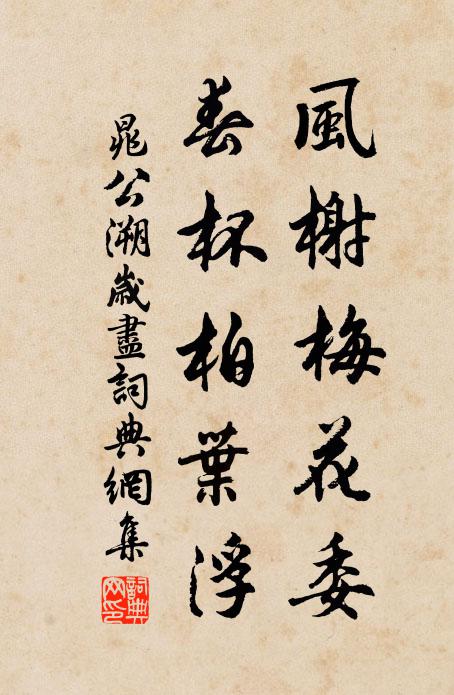 風榭梅花委
春杯柏葉浮
晁公溯歲盡詞典網集
詞典
网印